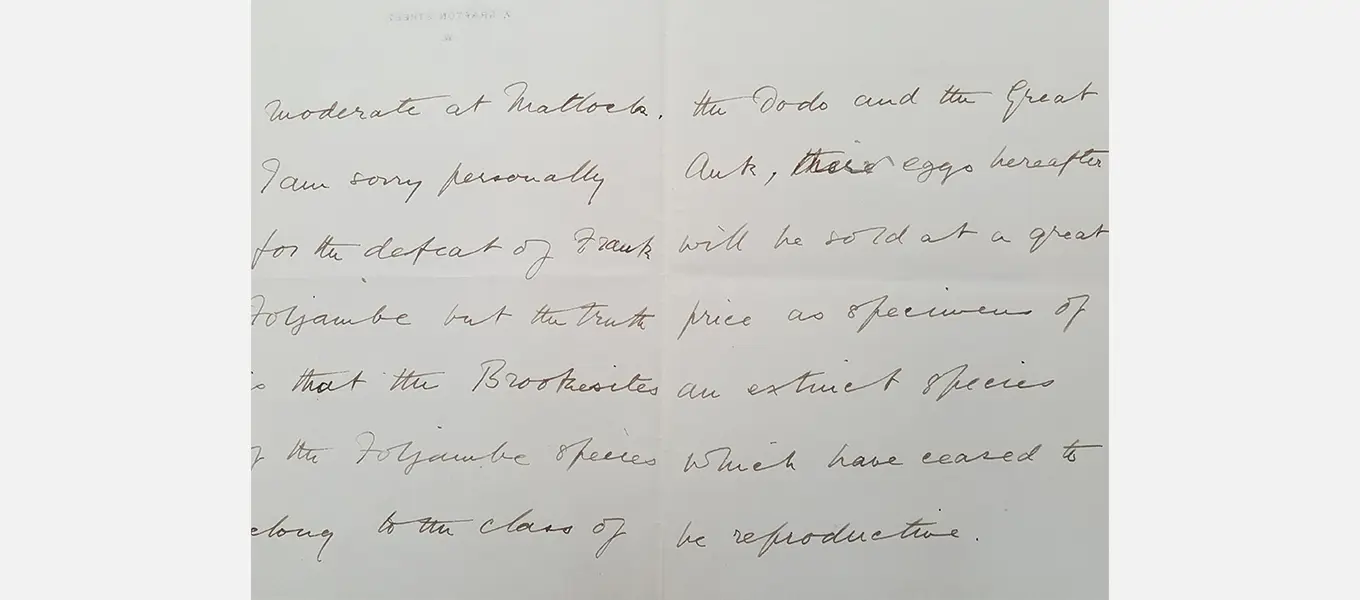 moderate at Matlock.
I am sorry personally
for the defeat of Frank
Foljambe but the truth
is that the Brookesites
of the Foljambe species
elong to the class of
the Dodo and the Great
Auk, their eggs hereafter
will be sold at a great
price as specimens of
an extinct species
which have ceased to
be reproductive.